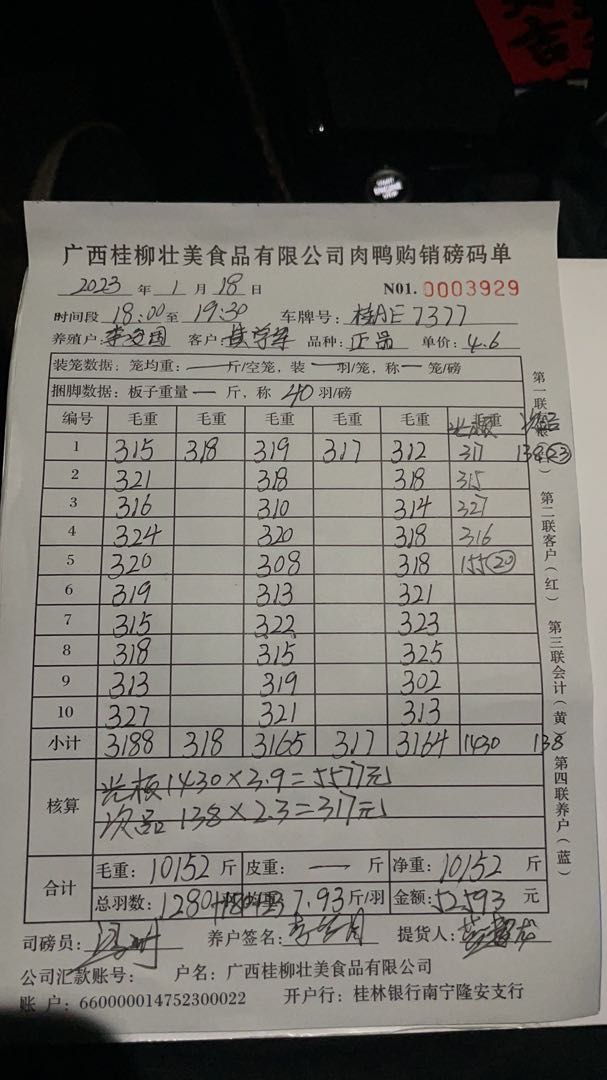 吉
广西桂柳壮美食品有限公司肉鸭购销磅码单
2023 年 1 月 18 日 N01. 0003929
时间段 18:00 至 19:30 车牌号: 桂AE7377
养殖户: 客户: 品种: 正品 单价: 4.6
装笼数据: 笼均重: — 斤/空笼, 装 — 羽/笼, 称 — 笼/磅
捆脚数据: 板子重量 — 斤, 称 40 羽/磅
编号 毛重 毛重 毛重 毛重 毛重 毛重 光板 次品
1 315 318 319 317 312 317 138 23
2 321 318 318 315
3 316 310 314 327
4 324 320 318 316
5 320 308 318 155 20
6 319 313 321
7 315 322 323
8 318 315 325
9 313 319 302
10 327 321 313
小计 3188 318 3165 317 3164 1430 138
核算 光板 1430×3.9=5577元
次品 138×2.3=317元
合计 毛重: 10152 斤 皮重: — 斤 净重: 10152 斤
总羽数: 1280 7.93 斤/羽 金额: 52593 元
司磅员: 养户签名: 提货人:
公司汇款账号: 户名: 广西桂柳壮美食品有限公司
账 户: 660000014752300022 开户行: 桂林银行南宁隆安支行
第二联客户(红)
第三联会计(黄
第四联养户(蓝)